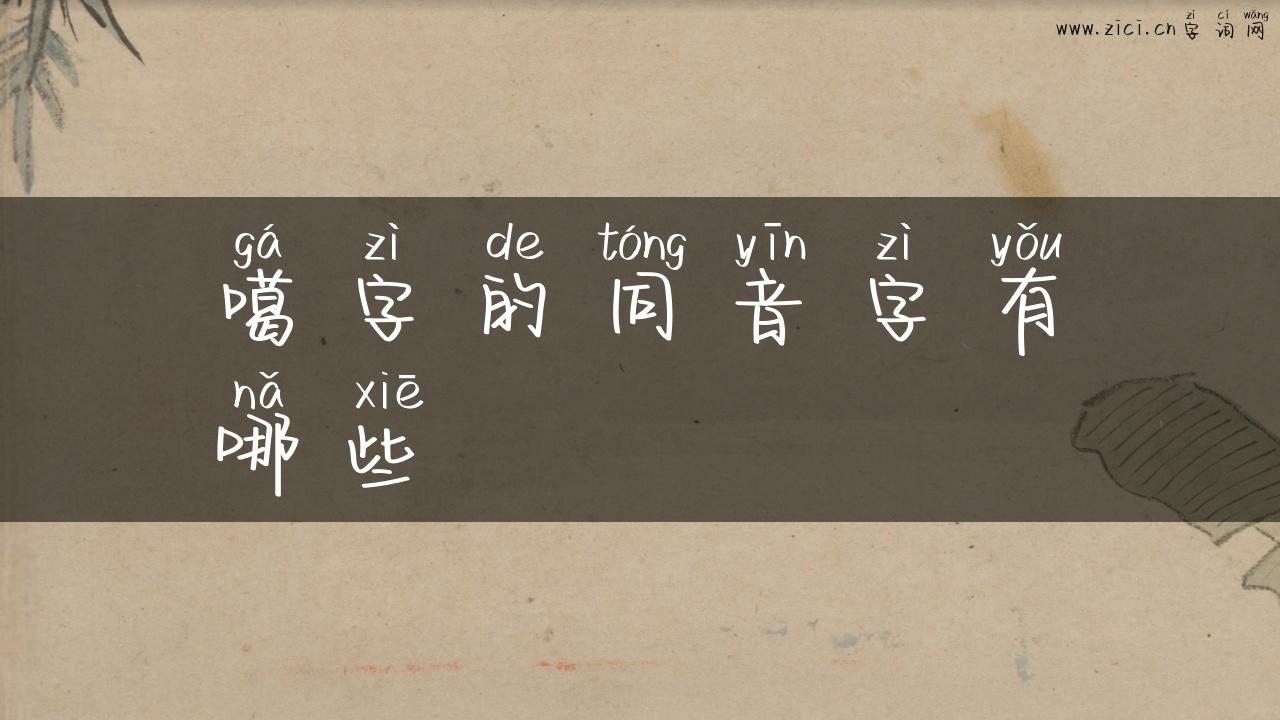 zì cí wǎng
www.zici.cn 字词网
gá zì de tóng yīn zì yǒu
噶字的同音字有
nǎ xiē
哪些